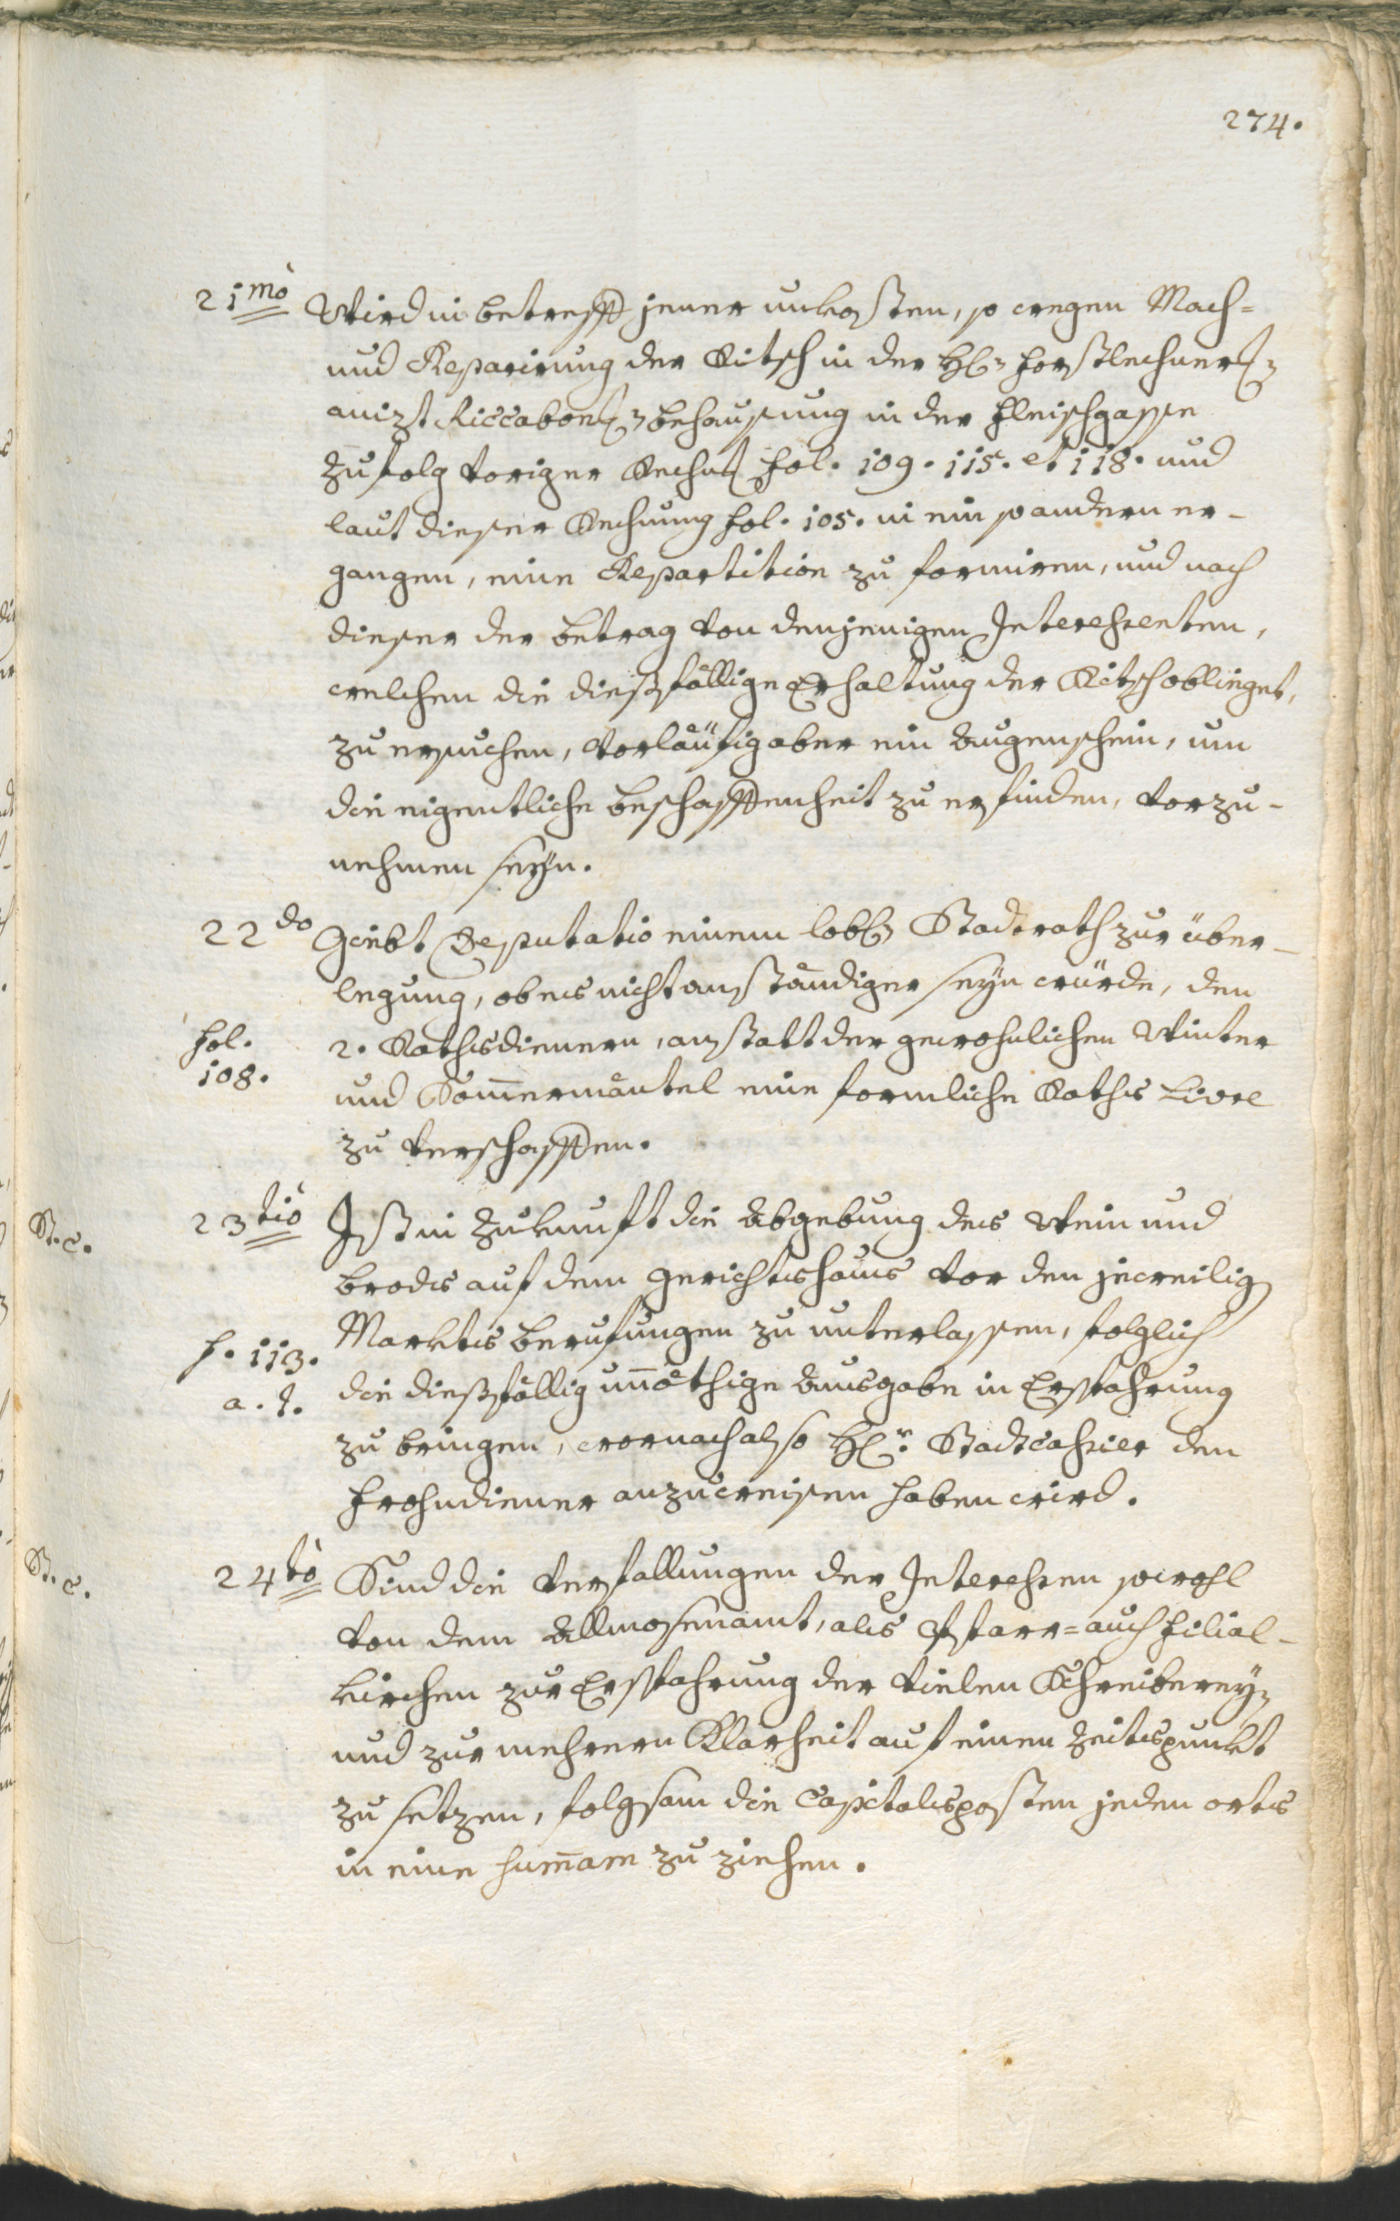 274.
21mò Wird in betreff jener unkosten, so wegen Mach=
und Reparirung der Ritsch in der H: Forstlechner:
anizt Riccabon: behausung in der Fleischgasse
zufolg voriger Rechnung fol. 109. 115. et 118. und
laut dieser Rechnung fol. 105. in ein so andern er-
gangen, eine Repartition zu formiren, und nach
dieser der betrag von denjenigen Interehsenten,
welchen die dießfällige Erhaltung der Ritsch oblieget,
zu ersuchen, vorläufig aber ein Augenschein, um
die eigentliche beschaffenheit zu erfinden, vorzu-
nehmen seyn.
22do Giebt Deputatio einem lobl: Stadtrath zur über-
legung, ob es nicht anständiger seyn würde, den
fol. 108.
2. Rathsdienern, anstatt der gewohnlichen Winter
und Som̄ermäntel eine formliche Raths Livre
zu verschaffen.
St. C.
23tiò Ist in Zukunft die Abgebung des Wein und
brods auf dem Gerichtshaus vor den jeweilig
f. 113. a. t.
Markts berufungen zu unterlassen, folglich
die dießfällig un̄öthige Ausgabe in Ersparung
zu bringen, wornach also H:r Stadtcahsier den
Frohndiener anzuweisen haben wird.
St. C.
24tò Sind die Verfallungen der Interehsen sowohl
von dem Allmosenamt, als Pfarr= auch Filial-
kirchen zur Ersparung der vielen Schreiberey:
und zur mehrern Klarheit auf einen Zeitspunkt
zu setzen, folgsam die Capitalsposten jeden orts
in eine sum̄am zu ziehen.